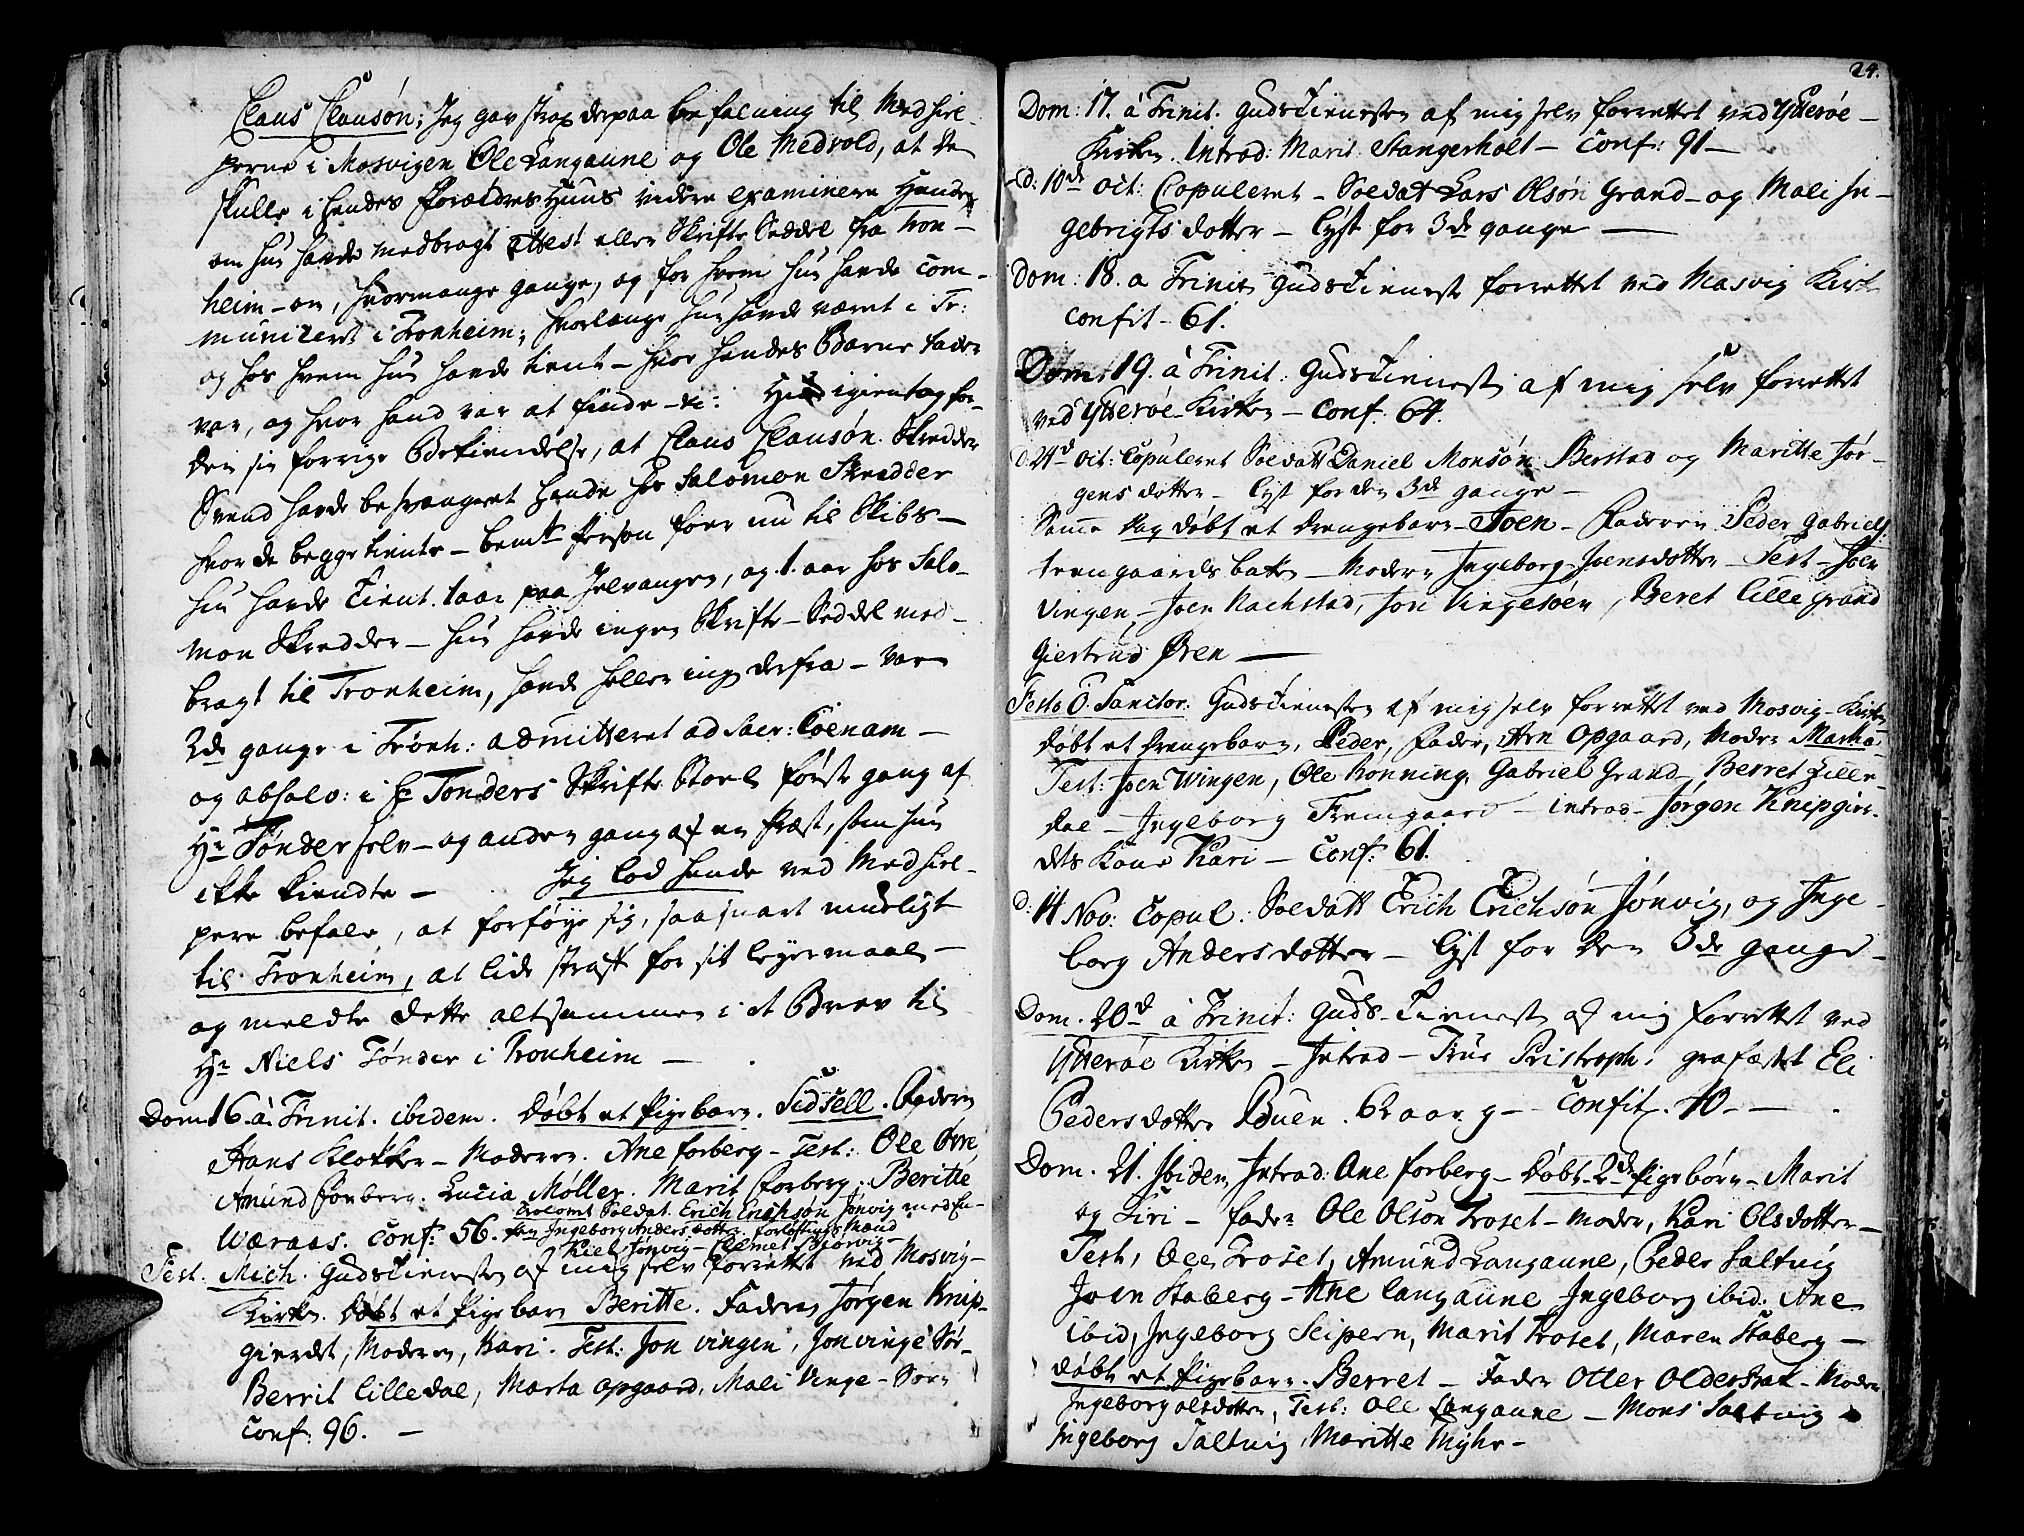 Claus Clausøn; Jeg gav strax derpaa befalning til Medhiel-
perne i Mosvigen Ole Langaune og Ole Medvold, at De
skulle i hendes Forældres Huus videre examinere Hende
om hun hafde medbragt Attest eller Skrifte Seddel fra Tron-
heim - om, hvormange gange, og for hvem hun hafde com-
municeret i Tronheim; hvorlænge hun hafde været i Tr:
og hos hvem hun hafde tient - hvor hendes Barne fader
var, og hvor hand var at finde - etc: Hun igientog for
den sin forrige Bekiendelse, at Claus Clausøn Skredder
Svend hafde besvangret hende hos Salomon Skredder
hvor de begge tiente - bemte Person foer nu til Skibs -
hun hafde tient 1 aar paa Jelvangen, og 1. aar hos Salo-
mon Skredder - hun hafde ingen Skrifte-Seddel med-
bragt til Tronheim, hafde heller ingen derfra - var
2de gange i Trønh: admitteret ad Sacr: Coenam -
og absolv: i Hr Tonders Skrifte Stoel første gang af
Hr Tønder selv - og anden gang af en Præst, som hun
ikke kiendte - Jeg lod hende ved Medhiel-
pere befale, at forføye sig, saa snart mueligt
til Tronheim, at lide straff for sit leyermaal -
og meldte dette altsammen i et Brev til
Hr Niels Tønder i Tronheim -
Dom: 16. à Trinit. ibidem. Døbt et Pigebarn. Sidsell. Faderen
Hans Klokker - Moderen. Ane forberg - Test: Ole Øvre
Amund forberg. Lucia Møller. Marit forberg. Beritte
Wæraas. Conf: 56. Trolovet Soldat Erich Erichsøn Jønvig med En-
ken Ingeborg Anders dotter forløftings Mænd
Kiel Jønvig - Clemet Biørvig -
Fest. Mich. Gudstienesten af mig selv forrettet ved Mosvig-
Kirken. Døbt et Pigebarn Beritte. Faderen Jørgen Knip-
gierdet, Moderen, Kari. Test: Jon vingen, Jon vinge Sør-
Berrit Lilledal, Marta opgaard, Mali Vinge - Søre
Conf: 96. -
24.
Dom: 17. à Trinit. Gudstienesten af mig selv forrettet ved Ytterøe -
Kirken. Introd: Marit Stangerholt - Conf: 91 -
d: 10de Oct: Copuleret - Soldat Lars Olsøn Grand - og Mali In-
gebrigts dotter - lyst for 3de gange -
Dom: 18. a Trinit Gudstieneste forrettet ved Masvig Kirke
Confit - 61.
Dom. 19. à Trinit: Gudstienesten af mig selv forrettet
ved Ytterøe-Kirken - Conf. 64.
d. 24d Oct: Copuleret Soldatt Daniel Monsøn Berstad og Maritte Jør-
gens dotter - lyst for den 3de gange -
Samme dag døbt et Drengebarn - Joen - Faderen Peder Gabriels:
trengaardsbatten - Modern Ingeborg Joensdotter - Test - Joen
Vingen - Joen Nachstad, Jon Vingesøen, Beret Lille grand
Giertrud Øren -
Festo O. Sanctor. Gudstienesten af mig selv forrettet ved Mosvig-Kirken
døbt et Drengebarn, Peder, fader, Arn Opgaard, Moder Martha
Test: Joen Wingen, Ole Rønning, Gabriel Grand, Berret Lille-
dal - Ingeborg Fremgaard - introd - Jørgen Knipgier-
dets Kone Kari - Conf: 61.
d: 14 Nov: Copul: Soldatt Erich Erichsøn Jønvig, og Inge-
borg Andersdotter - lyst for den 3de gange -
Dom. 20d à Trinit: Guds-Tienesten af mig forrettet ved
Ytterøe Kirken - Introd - Frue Pristroph; grafæstet Eli
Pedersdotter Buen. 62 aar g - Confit. 40. -
Dom. 21. Ibidem, Introd: Ane forberg - Døbt 2de Pigebørn - Marit
og Siri - fader Ole Olsøn Troset - Moder, Kari Olsdotter -
Test, Ole Troset, Amund Langaune, Peder Saltvig
Joen Staberg - Ane Langaune Ingeborg ibid: Ane
ibid, Ingeborg Seipern, Marit Troset, Maren Staberg -
døbt et Pigebarn. Berret - Fader Otter Olderbak - Moder
Ingeborg olsdotter, Test: Ole Langaune - Mons Saltvig
Ingeborg Saltvig, Maritte Myhr -